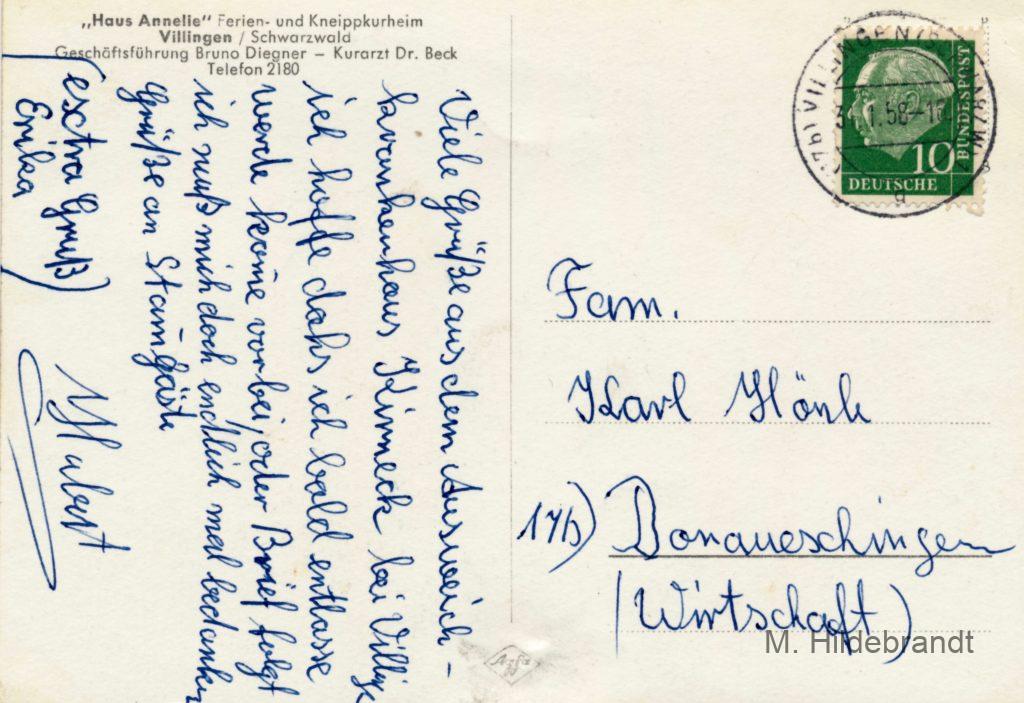 „Haus Annelie" Ferien- und Kneippkurheim
Villingen / Schwarzwald
Geschäftsführung Bruno Diegner – Kurarzt Dr. Beck
Telefon 2180
Viele Grüße aus dem Ausweich-
krankenhaus Kirneck bei Villige
ich hoffe dahs ich bald entlasse
werde kom̄e vorbei, oder Brief folgt
ich muß mich doch endlich mal bedanken
Grüße an Stam̄gäste
(extra Gruß)
Erika
Hubert
BUNDESPOST
10
DEUTSCHE
1.58
Fam.
Karl
17b) Donaueschingen
(Wirtschaft)
Agfa
M. Hildebrandt